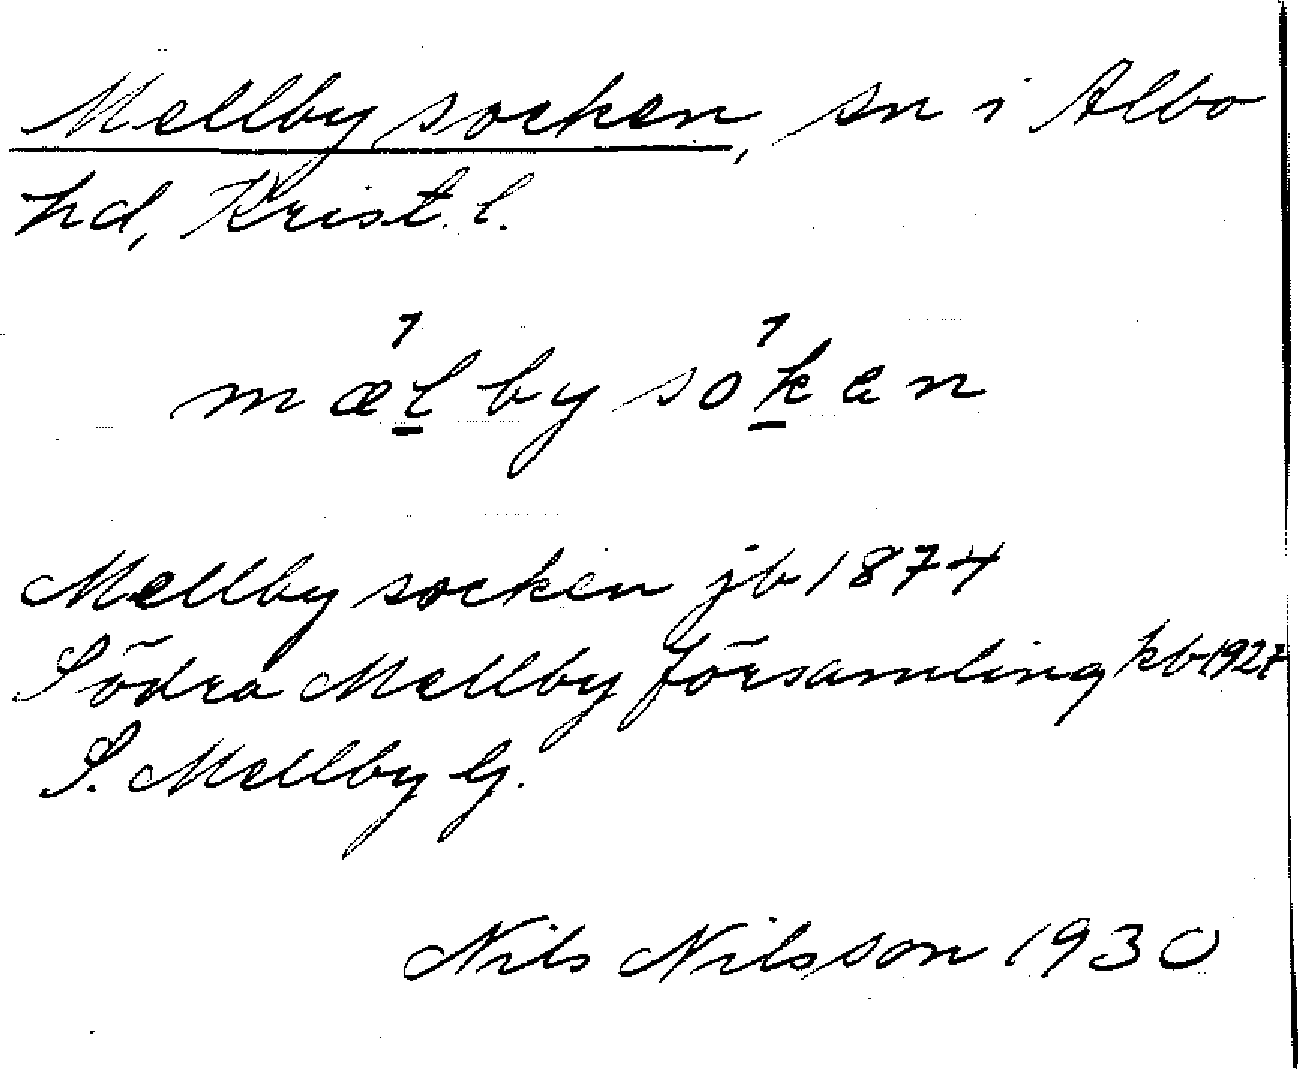 Mellby socken, sn i Albo
hd, Krist. l.
mæ´l̲bysó´k̲en
Mellby socken jb 1874
Södra Mellby församling kb 1927
S. Mellby G.
Nils Nilsson 1930